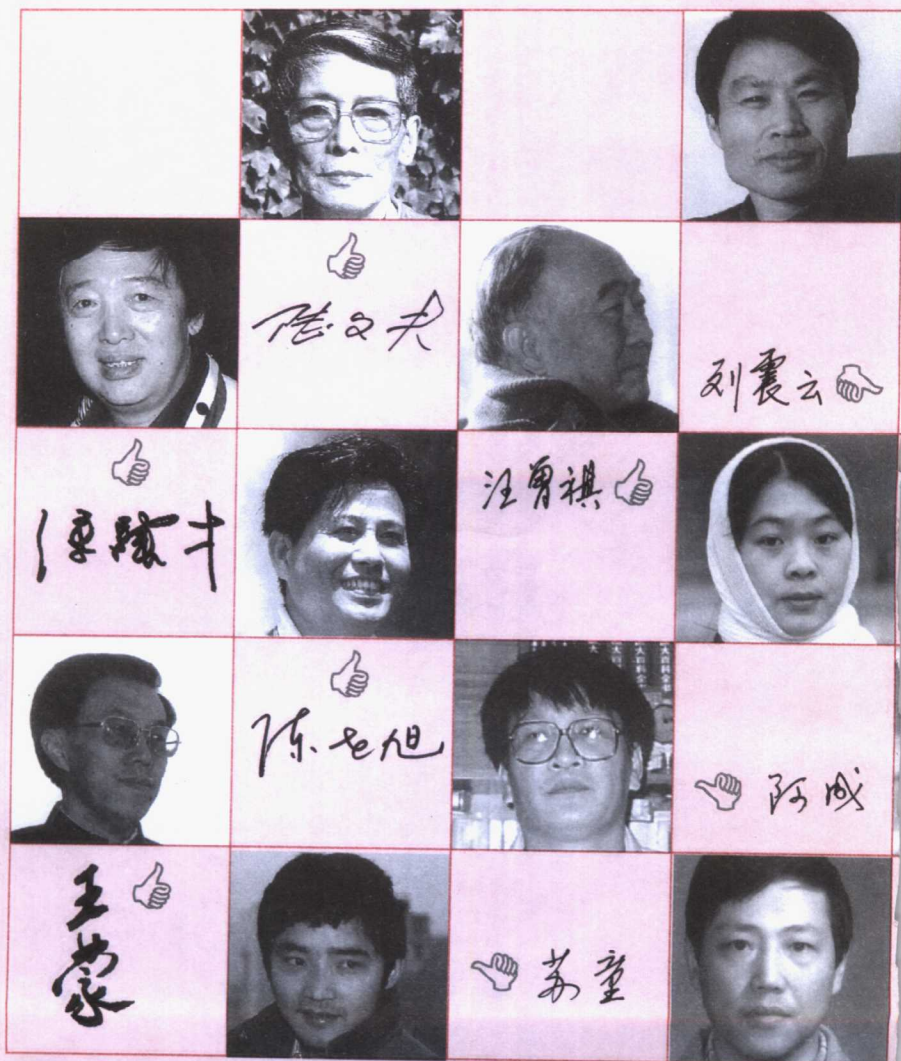 陆文夫
刘震云
汪曾祺
陈世旭
阿成
王蒙
苏童